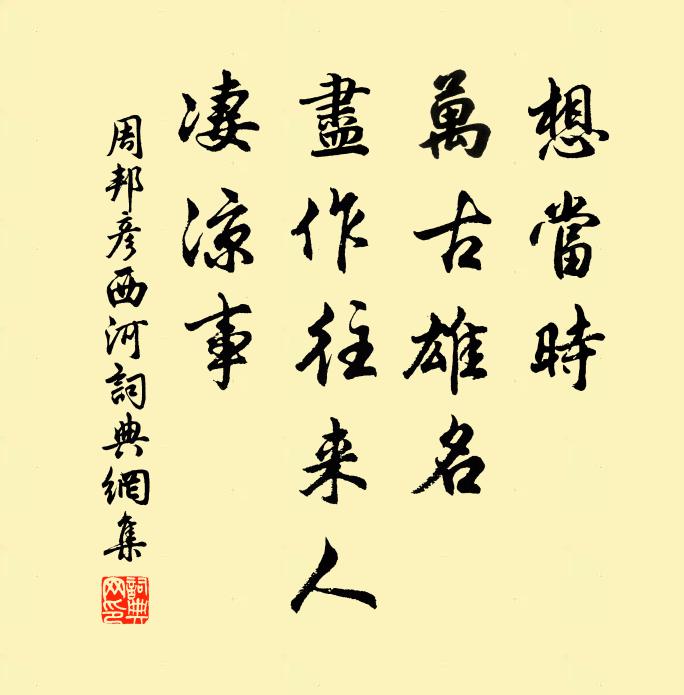 想當時
萬古雄名
盡作往来人
凄凉事
周邦彦西河詞典網集
詞典網印